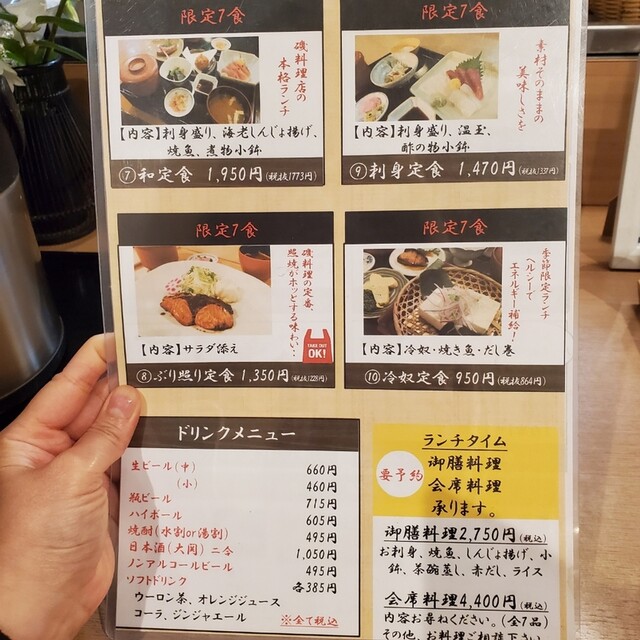 限定7食
磯料理店の
本格ランチ
【内容】刺身盛り、海老しんじょ揚げ、
焼魚、煮物小鉢
⑦和定食 1,950円(税抜1773円)
限定7食
素材そのままの
美味しさを
【内容】刺身盛り、温玉、
酢の物小鉢
⑨刺身定食 1,470円(税抜1337円)
限定7食
磯料理の定番、
照焼がホッとする味わい…
TAKE OUT
OK!
【内容】サラダ添え
⑧ぶり照り定食 1,350円(税抜1228円)
限定7食
季節限定ランチ
ヘルシーで
エネルギー補給!
【内容】冷奴・焼き魚・だし巻
⑩冷奴定食 950円(税抜864円)
ドリンクメニュー
生ビール(中) 660円
(小) 460円
瓶ビール 715円
ハイボール 605円
焼酎(水割or湯割) 495円
日本酒(大関)二合 1,050円
ノンアルコールビール 495円
ソフトドリンク 各385円
ウーロン茶、オレンジジュース
コーラ、ジンジャエール
※全て税込
ランチタイム
要予約
御膳料理
会席料理
承ります。
御膳料理2,750円(税込)
お刺身、焼魚、しんじょ揚げ、小
鉢、茶碗蒸し、赤だし、ライス
会席料理4,400円(税込)
内容お尋ねください。(全7品)
その他、お料理ご相談下さい